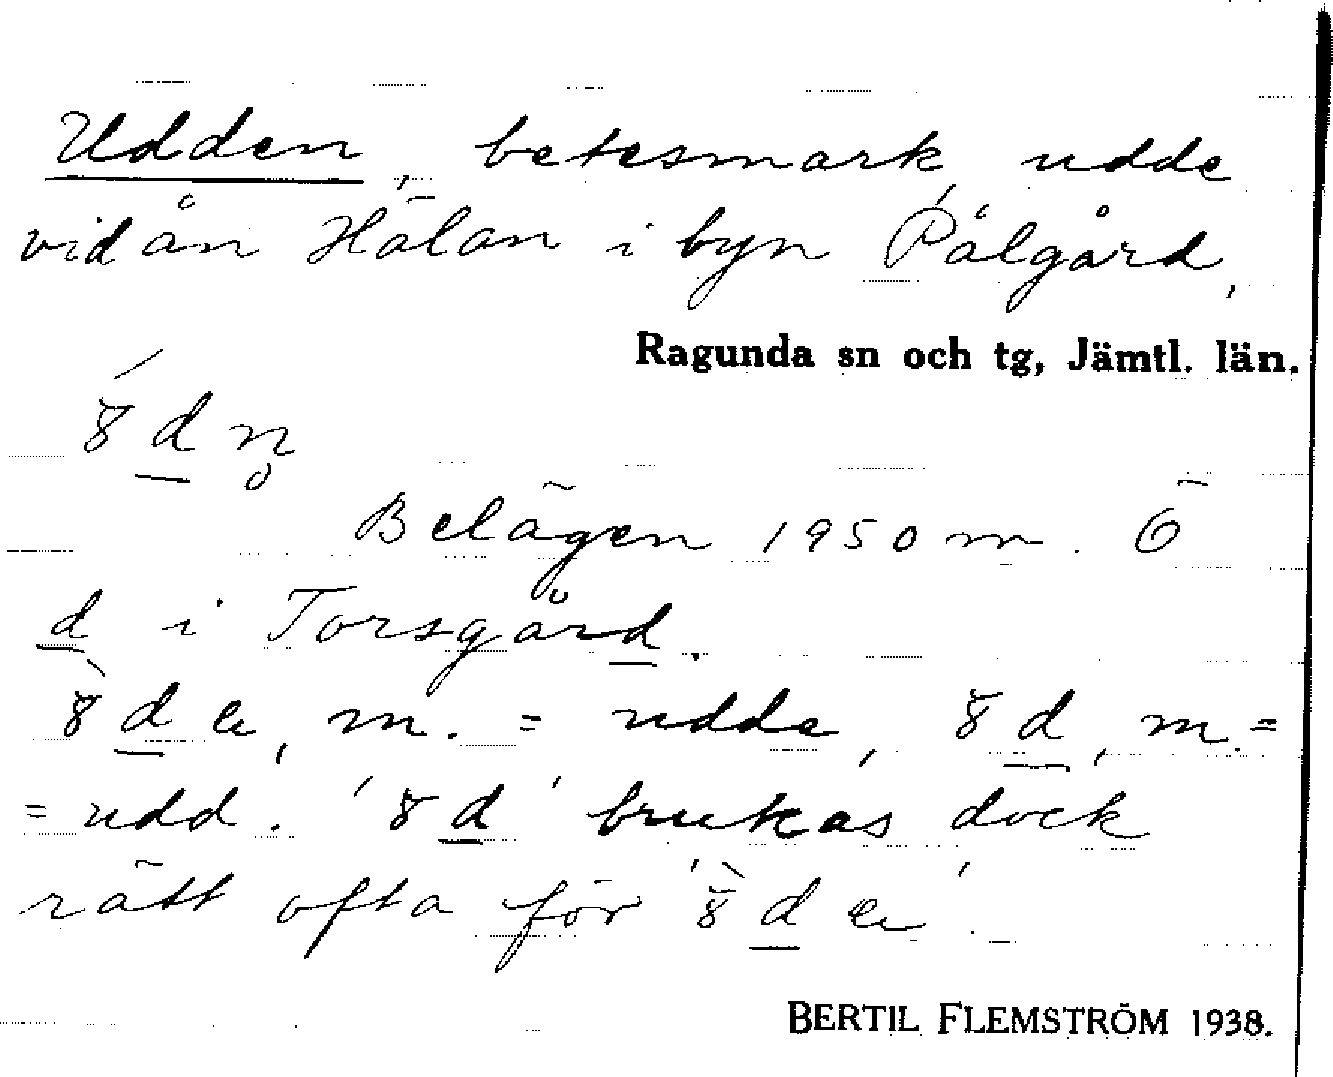 Udden, betesmark, udde
vid ån Hälan i byn Pålgård,
Ragunda sn och tg, Jämtl. län.
´8 d n̥
Belägen 1950 m. Ö
d i Torsgård.
8̀ d e, m. = udde, 8 d, m. =
= udd. '8 d' brukas dock
rätt ofta för '8̀ d e'.
BERTIL FLEMSTRÖM 1938.